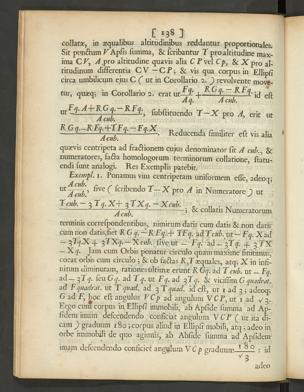 [ 138 ]
collatæ, in æqualibus altitudinibus reddantur proportionales.
Sit punctum V Apsis summa, & scribantur T pro altitudine max-
ima CV, A pro altitudine quavis alia CP vel Cp, & X pro al-
titudinum differentia CV − CP; & vis qua corpus in Ellipsi
circa umbilicum ejus C ( ut in Corollario 2. ) revolvente move-
tur, quæq; in Corollario 2. erat ut Fq./Aq. + RGq. − RFq./A cub. id est
ut Fq. A + RGq. − RFq./A cub., substituendo T − X pro A, erit ut
RGq. − RFq. + TFq. − Fq. X/A cub. Reducenda similiter est vis alia
quævis centripeta ad fractionem cujus denominator sit A cub., &
numeratores, facta homologorum terminorum collatione, statu-
endi sunt analogi. Res Exemplis patebit.
Exempl. 1. Ponamus vim centripetam uniformem esse, adeoq;
ut A cub./A cub., sive ( scribendo T − X pro A in Numeratore ) ut
T cub. − 3 Tq. X + 3 TXq. − X cub./A cub.; & collatis Numeratorum
terminis correspondentibus, nimirum datis cum datis & non datis
cum non datis, fiet RGq. − RFq. + TFq. ad T cub. ut − Fq. X ad
− 3Tq. X + 3TXq. − X cub. sive ut − Fq. ad − 3Tq. + 3TX
− Xq. Jam cum Orbis ponatur circulo quam maxime finitimus,
coeat orbis cum circulo; & ob factas R, T æquales, atq; X in infi-
nitum diminutam, rationes ultimæ erunt RGq. ad T cub. ut − Fq.
ad − 3Tq. seu Gq. ad Tq. ut Fq. ad 3Tq. & vicissim Gquadrat.
ad Fquadrat. ut T quad. ad 3T quad. id est, ut 1 ad 3; adeoq;
G ad F, hoc est angulus VCp ad angulum VCP, ut 1 ad √3.
Ergo cum corpus in Ellipsi immobili, ab Apside summa ad Ap-
sidem imam descendendo conficiat angulum VCP ( ut ita di-
cam ) graduum 180; corpus aliud in Ellipsi mobili, atq; adeo in
orbe immobili de quo agimus, ab Apside summa ad Apsidem
imam descendendo conficiet angulum VCp graduum 180/√3: id
adeo